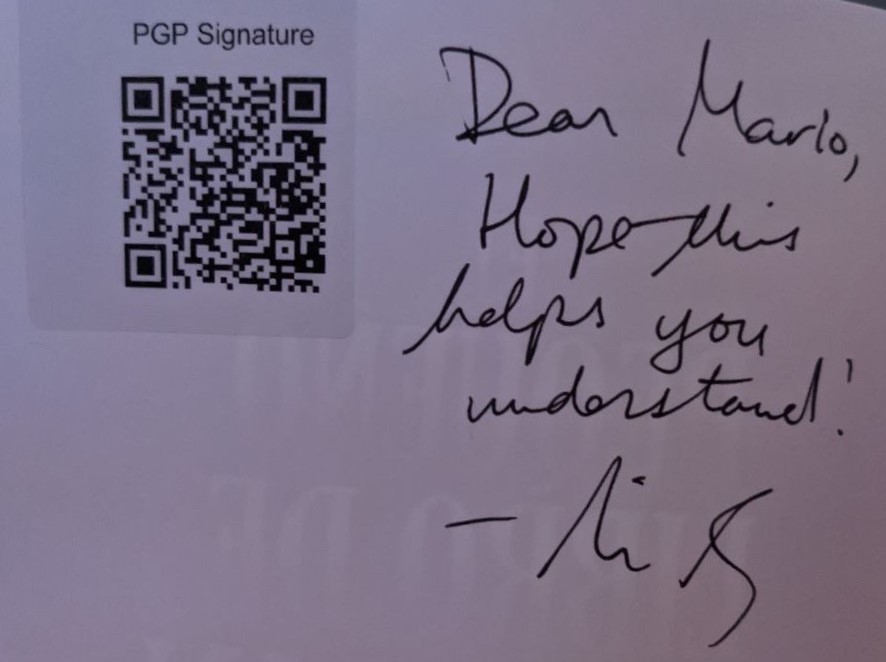 PGP Signature
Dear Mario,
Hope this
helps you
understand!